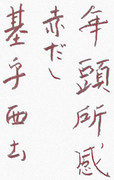 年頭所感
赤だし
基乎西土